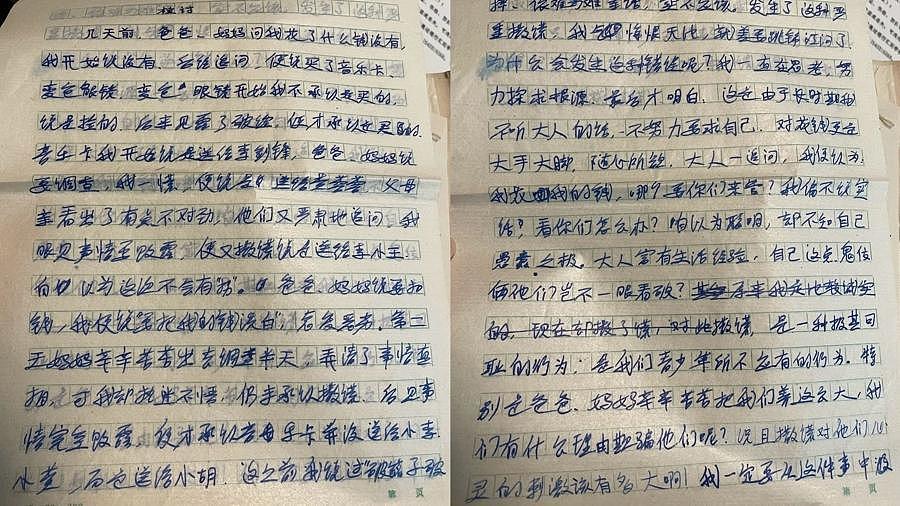 检讨
几天前,爸爸、妈妈问我发了什么钱没有,
我开始说没有,后经追问,便说买了音乐卡、
变色眼镜。变色眼镜开始我不承认是买的
说是捡的,后来见露了破绽,便才承认是买的.
音乐卡我开始说是送给李剑锋,爸爸、妈妈说
要调查,我一慌,便说是 父母
亲看出了有点不对劲,他们又严肃地追问,我
眼见事情至败露,便又撒谎说是送给李小
自以为这次不会有 爸爸、妈妈说要扣
钱,我便说"要把我的钱漂白" 第二
天妈妈辛辛苦苦出去调查半天,弄清了事情真
相,可我却执迷不悟,仍未承认撒谎。后见事
情完全败露,便才承认音乐卡并没送给小李、
小董,而是送给小胡。这之前我说过
第 页
发生了这种严
重撒谎,我 悔恨无比,就差要跳锦江河了.
为什么会发生这种错误呢?我一直在思考,努
力探求根源,最后才明白,这是由于长时期我
不听大人的话,不努力要求自己,对花钱更是
大手大脚,随心所欲,大人一追问,我便认为
我花 我的钱,哪个要你们来管?我偏不说实
话!看你们怎么办?自以为聪明,却不知自己
愚蠢之极。大人富有生活经验,自己这点鬼伎
俩他们岂不一眼看破?
的,现在却撒了谎,对此撒谎,是一种极其可
耻的行为;是我们青少年所不应有的行为。特
别是爸爸、妈妈辛辛苦苦把我们养这么大,我
们有什么理由欺骗他们呢?况且撒谎对他们心
灵的刺激该有多大啊!我一定要从这件事中汲
第 页